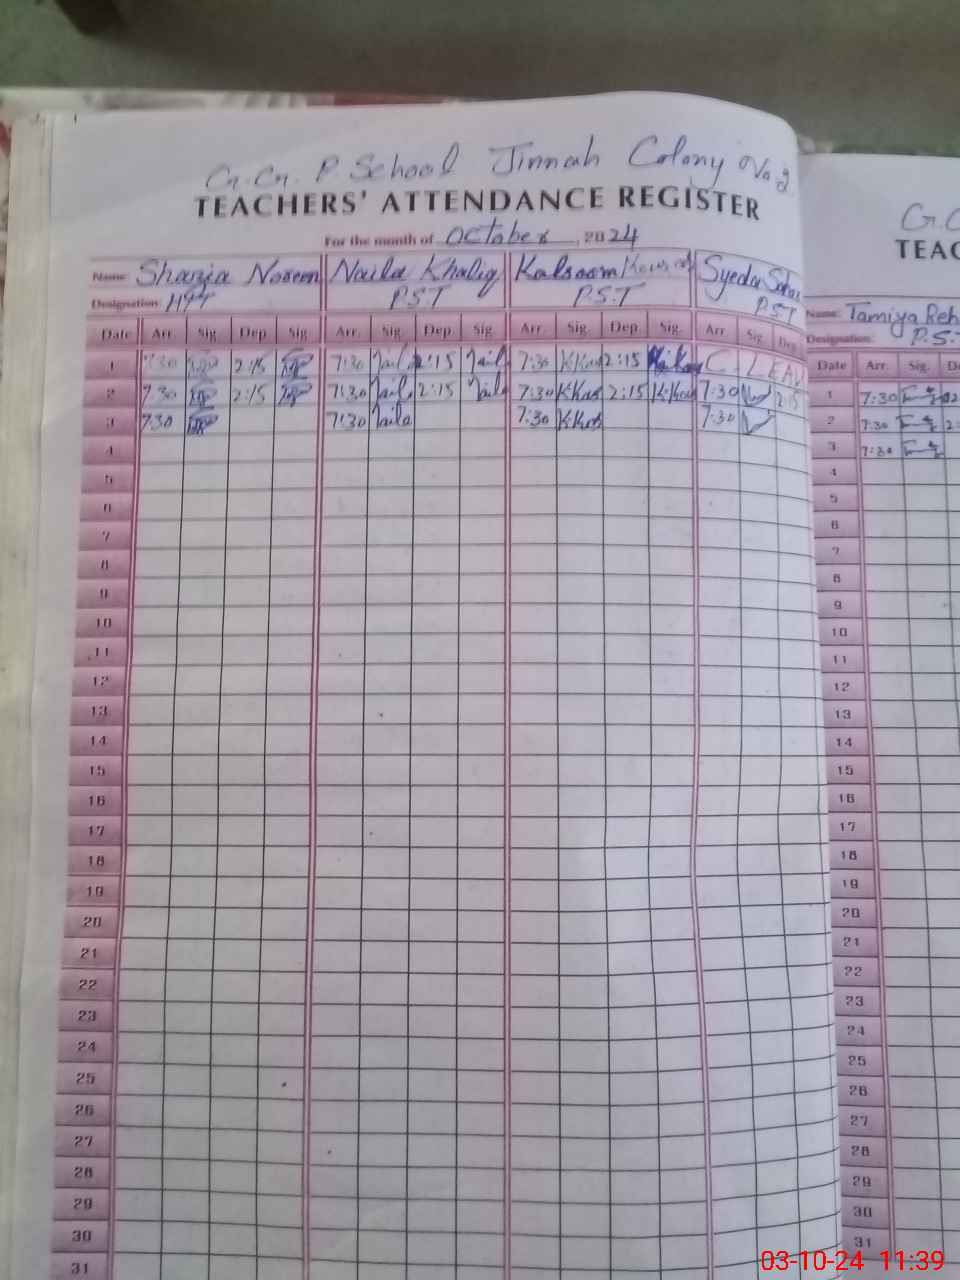 G.G. P. School Jinnah Colony No 2
TEACHERS' ATTENDANCE REGISTER
For the month of October, 2024
Name: Shazia Noreen Naila Khaliq Kalsoom Kousar Syeda
Designation: HT P.S.T P.S.T PST
Date Arr. Sig. Dep. Sig. Arr. Sig. Dep. Sig. Arr. Sig. Dep. Sig. Arr. Sig. Dep.
1 7:30 2:15 7:30 Naila 2:15 Naila 7:30 K.Kous 2:15 C. LEAV
2 7:30 2:15 7:30 Naila 2:15 Naila 7:30 K.Kous 2:15 K.Kous 7:30 2:15
3 7:30 7:30 Naila 7:30 K.Kous 7:30
4
5
6
7
8
9
10
11
12
13
14
15
16
17
18
19
20
21
22
23
24
25
26
27
28
29
30
31
G.G
TEAC
Name: Tamiya Reh
Designation: P.S.T
Date Arr. Sig. De
1 7:30
2 7:30 2:
3 7:30
4
5
6
7
8
9
10
11
12
13
14
15
16
17
18
19
20
21
22
23
24
25
26
27
28
29
30
31
03-10-24 11:39